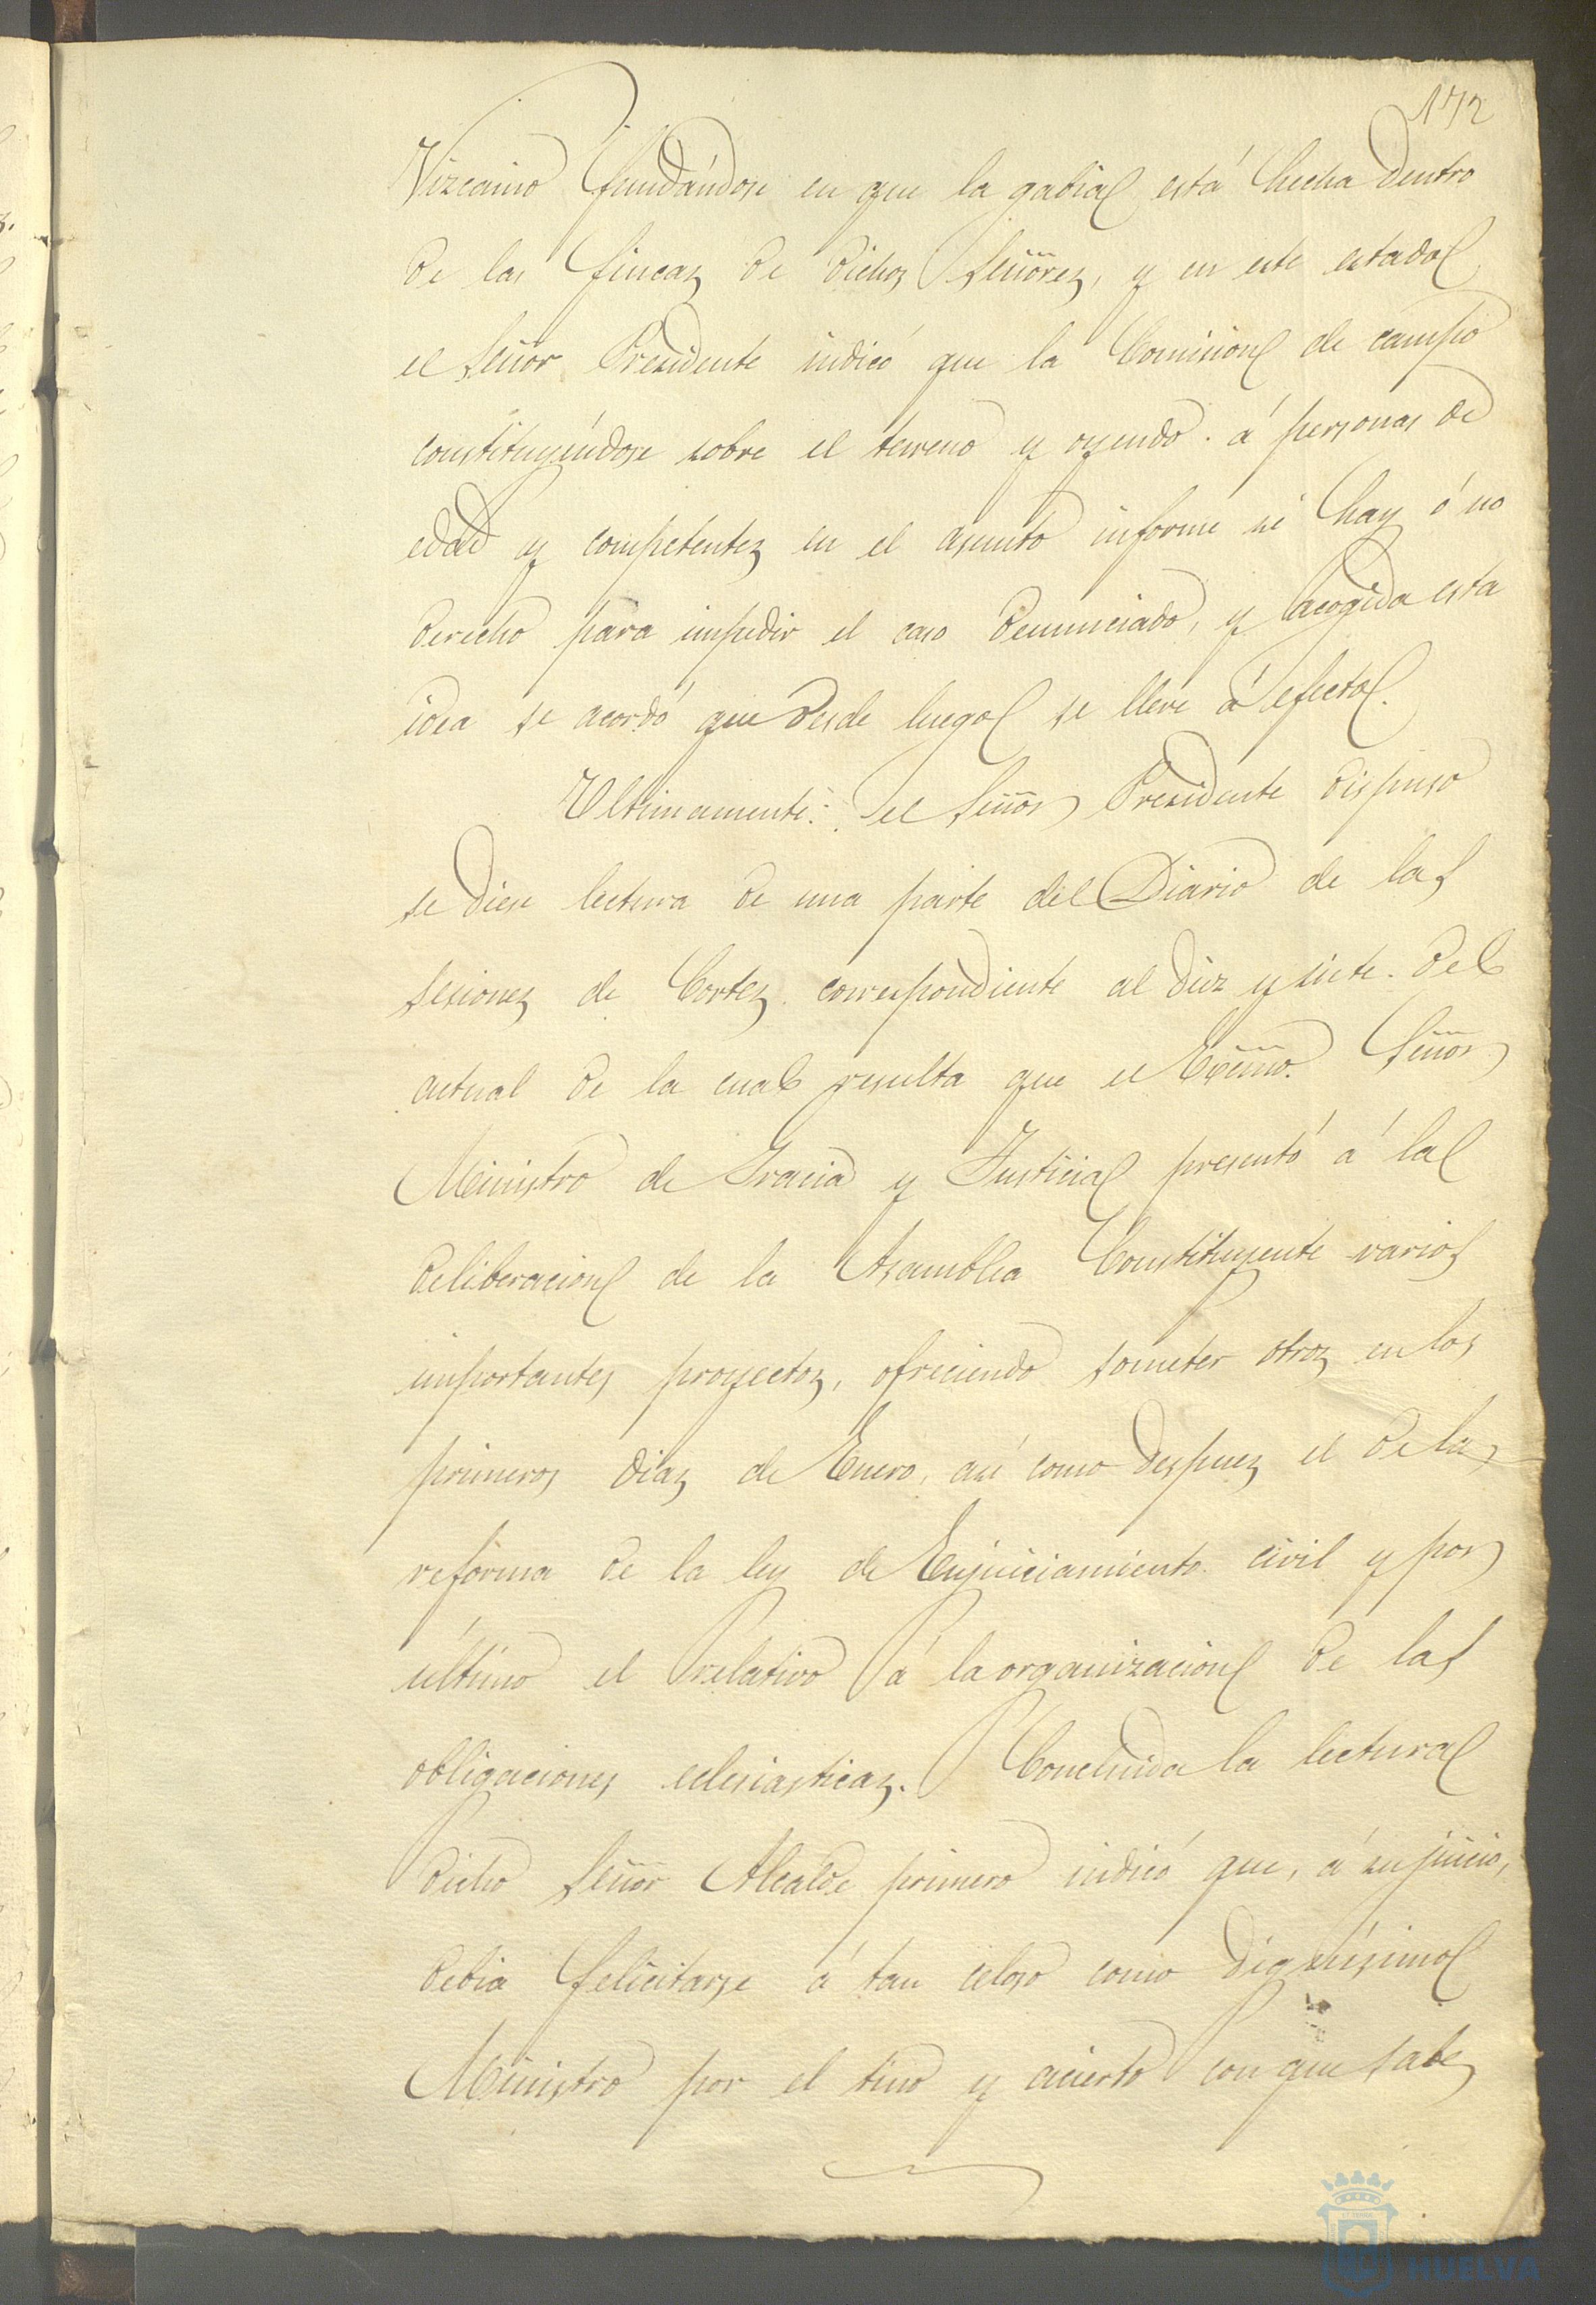 172
Vizcaino fundándose en que la gabia está hecha dentro
de las fincas de dichos Señores, y en este estado
el Señor Presidente indicó que la Comision de campo
constituyéndose sobre el terreno y oyendo á personas de
edad y competentes en el asunto informe si hay ó no
derecho para impedir el caso denunciado, y acogida esta
idea se acordó que desde luego se lleve á efecto.
Ultimamente: el Señor Presidente dispuso
se diese lectura de una parte del Diario de las
sesiones de Cortes correspondiente al diez y siete del
actual de la cual resulta que el Excmo. Señor
Ministro de Gracia y Justicia presentó á la
deliberacion de la Asamblea Constituyente varios
importantes proyectos, ofreciendo someter otros en los
primeros dias de Enero, asi como despues el de la
reforma de la ley de Enjuiciamiento civil y por
último el relativo á la organizacion de las
obligaciones eclesiasticas. Concluida la lectura
dicho Señor Alcalde primero indicó que, á su juicio,
debia felicitarse á tan celoso como dignísimo
Ministro por el tino y acierto con que sabe
HUELVA